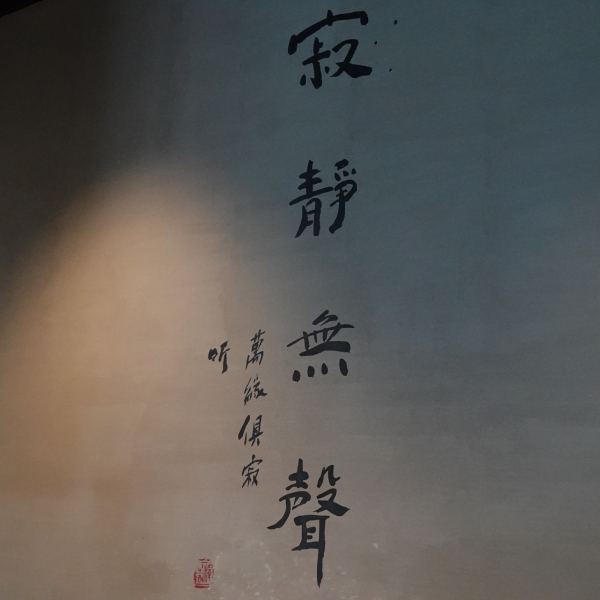 寂靜無聲
萬緣俱寂
听